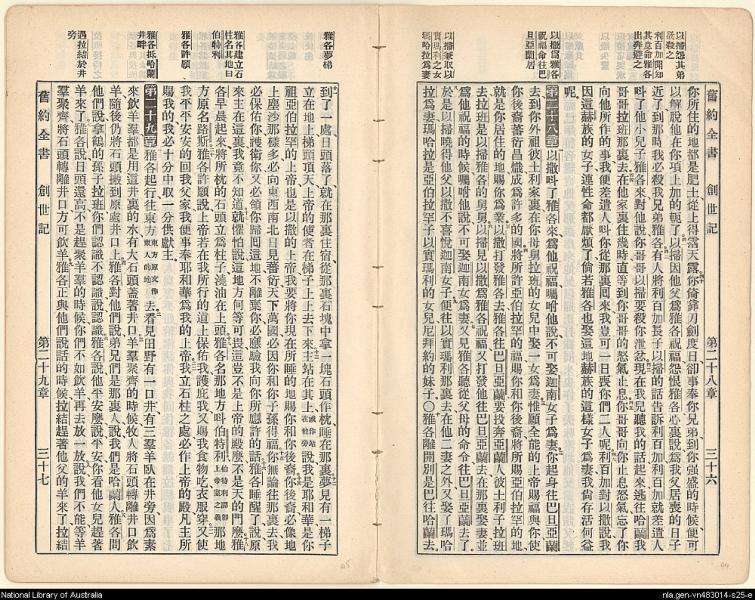 舊約全書 創世記 第二十八章 三十六
以掃怨其弟
謀殺之
利百加聞知
其意命雅各
出奔避之
以撒爲雅各
祝福命往巴
旦亞蘭
以掃兼取以
實瑪利之女
瑪哈拉爲妻
你所住的地都是肥土從上得霑天露你倚靠刀劍度日卻事奉你兄弟到你强盛的時候便可
以解脫他在你項上加的軛了以掃因他父爲雅各祝福怨恨雅各心裏說爲我父居喪的日子
近了到那時我必殺我兄弟雅各有人將利百加長子以掃的話告訴利百加利百加就差遣人
呌了他小兒子雅各來對他說你哥哥以掃要殺你泄忿現在我兒聽我的話起來逃往哈蘭我
哥拉班那裏去在他家裏住幾時直等到你哥哥的怒氣止息你哥哥向你止息怒氣忘了你
向他所作的事我便差遣人呌你從那裏囘來我豈可一日喪你們二人呢利百加對以撒說我
因這赫族的女子連性命都厭煩了倘若雅各也娶這地赫族的這樣女子爲妻我尙存活何益
呢
第二十八章 以撒呌了雅各來爲他祝福囑咐他說不可娶迦南女子爲妻你起身往巴旦亞蘭
去到你外祖彼土利家裏在你母舅拉班的女兒中娶一女爲妻惟願全能的上帝賜福與你使
你後裔蕃衍昌熾成爲許多的國將所許亞伯拉罕的福賜你和你後裔將所賜亞伯拉罕的地
就是你居住的地賜你爲業以撒打發雅各去雅各往巴旦亞蘭要投奔亞蘭人彼土利子拉班
去拉班是以掃雅各的舅舅以掃見以撒爲雅各祝福又打發他往巴旦亞蘭去在那裏娶妻並
爲他祝福的時候囑咐他說不可娶迦南女子爲妻又見雅各聽從父母的命令往巴旦亞蘭去了
於是以掃曉得他父以撒不喜悅迦南女子便往以實瑪利那裏去在他二妻之外又娶了瑪哈
拉爲妻瑪哈拉是亞伯拉罕子以實瑪利的女兒尼拜約的妹子〇雅各離開別是巴往哈蘭去
雅各夢梯
雅各建立石
柱名其地曰
伯特利
雅各許願
雅各抵哈蘭
井畔
遇拉結於井
旁
到了一處日頭落了就在那裏住宿從那裏石塊中拿一塊石頭作枕睡在那裏夢見有一梯子
立在地上梯頭頂天上帝的使者在梯子上上去下來主站在其上說我是耶和華是你
祖亞伯拉罕的上帝也是以撒的上帝我要將你現在所睡的地賜你和你後裔你後裔必像地
上塵沙那樣多必向東西南北日見蕃衍天下萬國必因你和你子孫得福你無論往那裏去我
必保佑你護衞你又必領你歸囘這地不離棄你必應驗我向你所應許的話雅各睡醒了說原
來主在這裏我竟不知道就懼怕說這地方何等可畏這豈不是上帝的殿麽不是天的門麽雅
各早晨起來將所枕的石頭立爲柱子澆油在上頭雅各名那地方呌伯特利那地
方原名路斯雅各許願說上帝若在我所行的道上保佑我護庇我又賜我食物吃衣服穿又使
我平平安安的囘我父家我便事奉耶和華爲我的上帝我立石柱之處必作上帝的殿凡主所
賜我的我必十分中取一分供獻主
第二十九章 雅各起行往東方去看見田野有一口井有三羣羊臥在井旁因爲素
來飲羊羣都是用這井裏的水有大石頭蓋著井口羊羣聚齊的時候牧人將石頭轉離井口飲
羊隨後仍將石頭搬到原處井口上雅各對他們說弟兄們是那裏人說我們是哈蘭人雅各問
他們說拿鶴的孫子拉班你們認識不認識說認識雅各說他平安麽說平安你看他女兒趕著
羊來了雅各說日頭還高不是趕聚羊羣的時候你們不如飲羊再去放一放說我們不能等羊
羣聚齊將石頭轉離井口方可飲羊雅各正與他們說話的時候拉結趕著他父的羊來了拉結
舊約全書 創世記 第二十九章 三十七
National Library of Australia
nla.gen-vn483014-s25-e